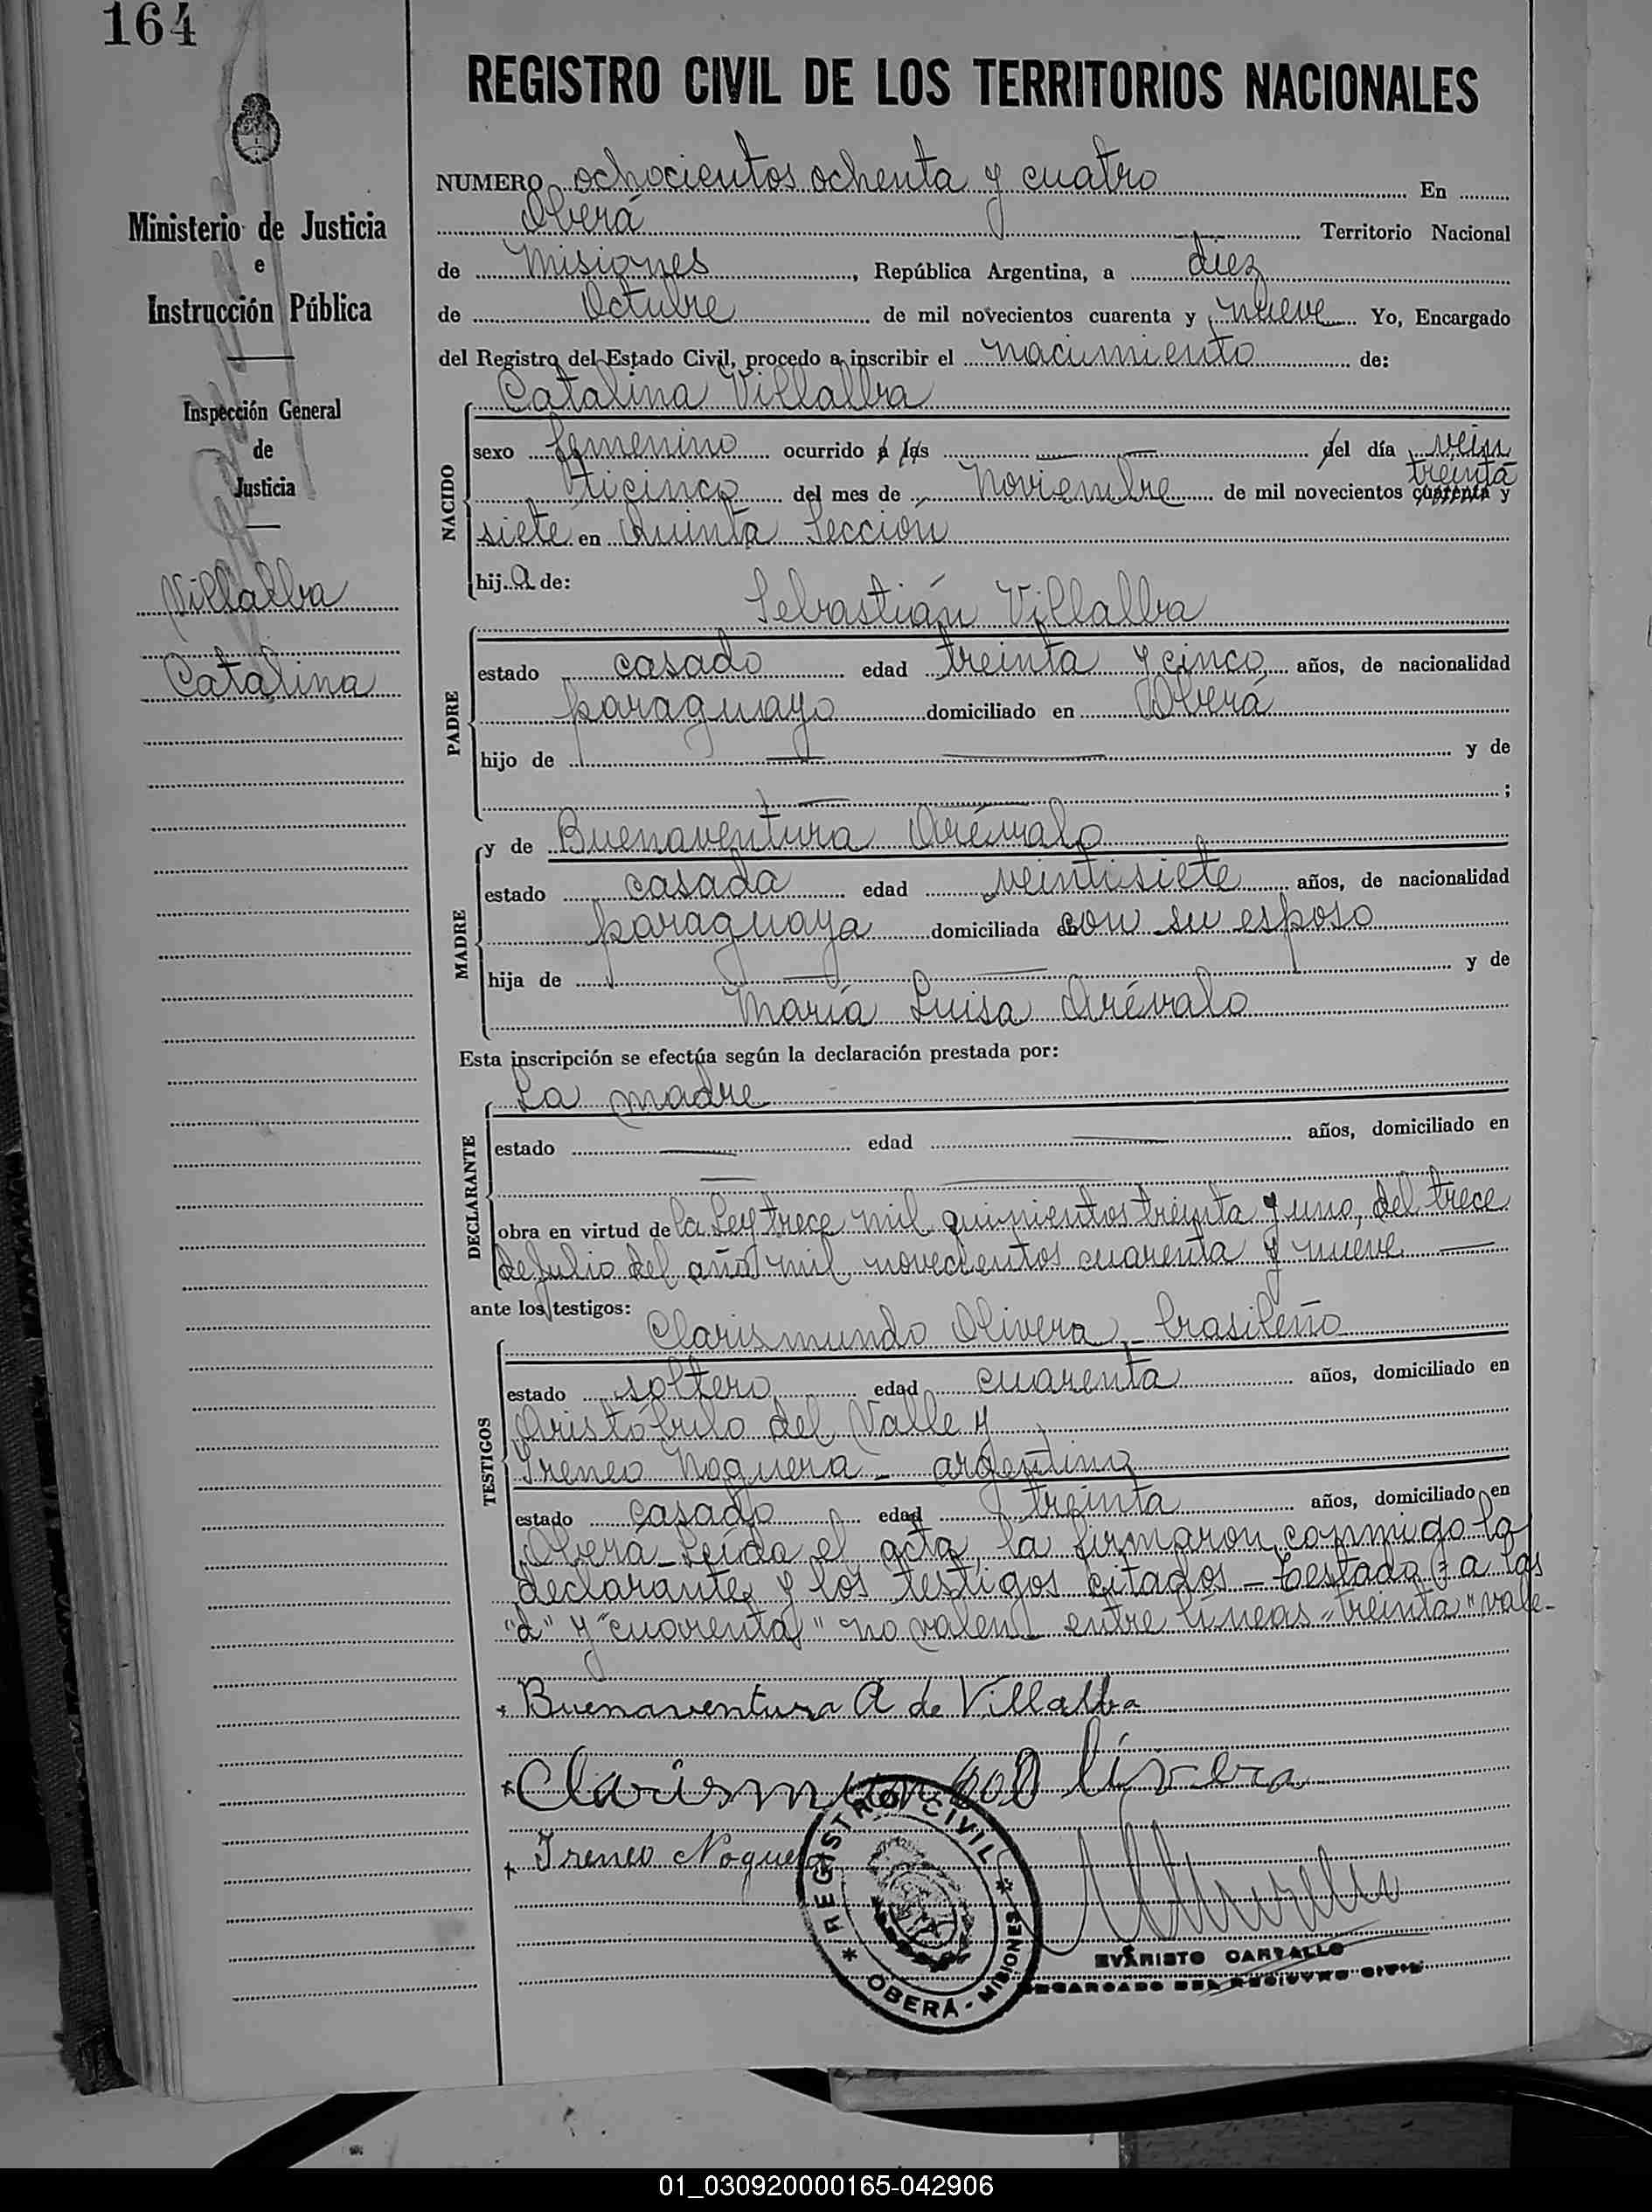 164
REGISTRO CIVIL DE LOS TERRITORIOS NACIONALES
Ministerio de Justicia
e
Instrucción Pública
Inspección General
de
Justicia
Villalba
Catalina
NUMERO ochocientos ochenta y cuatro En
Oberá Territorio Nacional
de Misiones, República Argentina, a diez
de Octubre de mil novecientos cuarenta y nueve Yo, Encargado
del Registro del Estado Civil, procedo a inscribir el nacimiento de:
Catalina Villalba
NACIDO
sexo femenino ocurrido a las del día vein
treinta
ticinco del mes de Noviembre de mil novecientos cuarenta y
siete en Quinta Sección
hij a de:
Sebastián Villalba
PADRE
estado casado edad treinta y cinco años, de nacionalidad
paraguayo domiciliado en Oberá
hijo de y de
;
y de Buenaventura Arévalo
MADRE
estado casada edad veintisiete años, de nacionalidad
paraguaya domiciliada con su esposo
hija de y de
María Luisa Arévalo
Esta inscripción se efectúa según la declaración prestada por:
La madre
DECLARANTE
estado edad años, domiciliado en
obra en virtud de la Ley trece mil quinientos treinta y uno, del trece
de Julio del año mil novecientos cuarenta y nueve
ante los testigos:
Clarismundo Olivera - brasileño
TESTIGOS
estado soltero edad cuarenta años, domiciliado en
Aristóbulo del Valle y
Ireneo Noguera - argentino
estado casado edad treinta años, domiciliado en
Oberá - Leída el acta, la firmaron conmigo la
declarante y los testigos citados - Testado: a las
"d" y "cuarenta" no valen - entre líneas "treinta" vale -
Buenaventura A de Villalba
Clarismundo Olívera
Ireneo Noguera
* REGISTRO CIVIL *
OBERÁ - MISIONES
EVARISTO CARVALLO
ENCARGADO DEL REGISTRO CIVIL
01_030920000165-042906